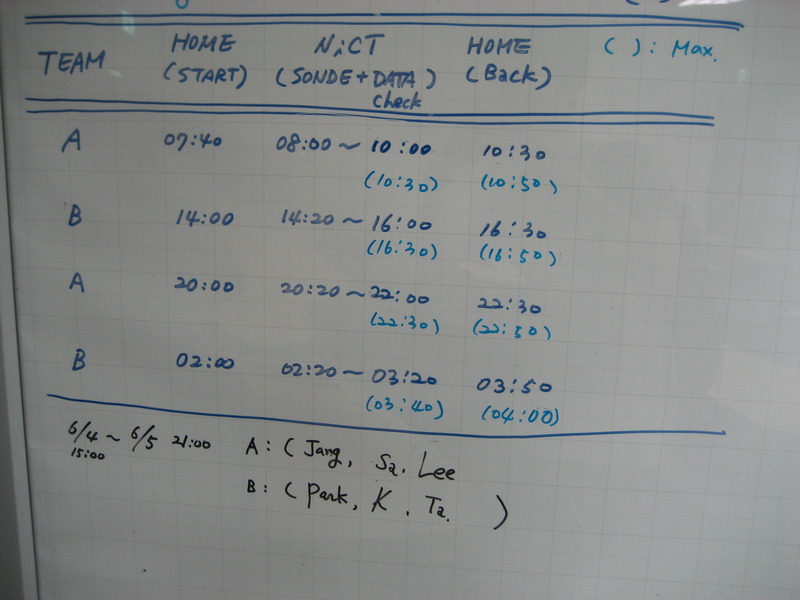 HOME NiCT HOME ( ): Max.
TEAM (START) (SONDE + DATA) (Back)
check
A 07:40 08:00 ~ 10:00 10:30
(10:30) (10:50)
B 14:00 14:20 ~ 16:00 16:30
(16:30) (16:50)
A 20:00 20:20 ~ 22:00 22:30
(22:30) (22:50)
B 02:00 02:20 ~ 03:20 03:50
(03:40) (04:00)
6/4 ~ 6/5 21:00 A: (Jang, Sa. Lee
15:00
B: (Park, K, Ta. )